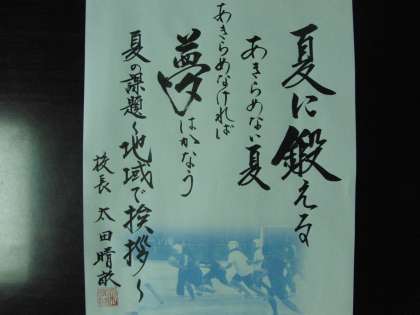 夏に鍛える
あきらめない夏
あきらめなければ
夢はかなう
夏の課題〜地域で挨拶〜
校長 太田晴敬